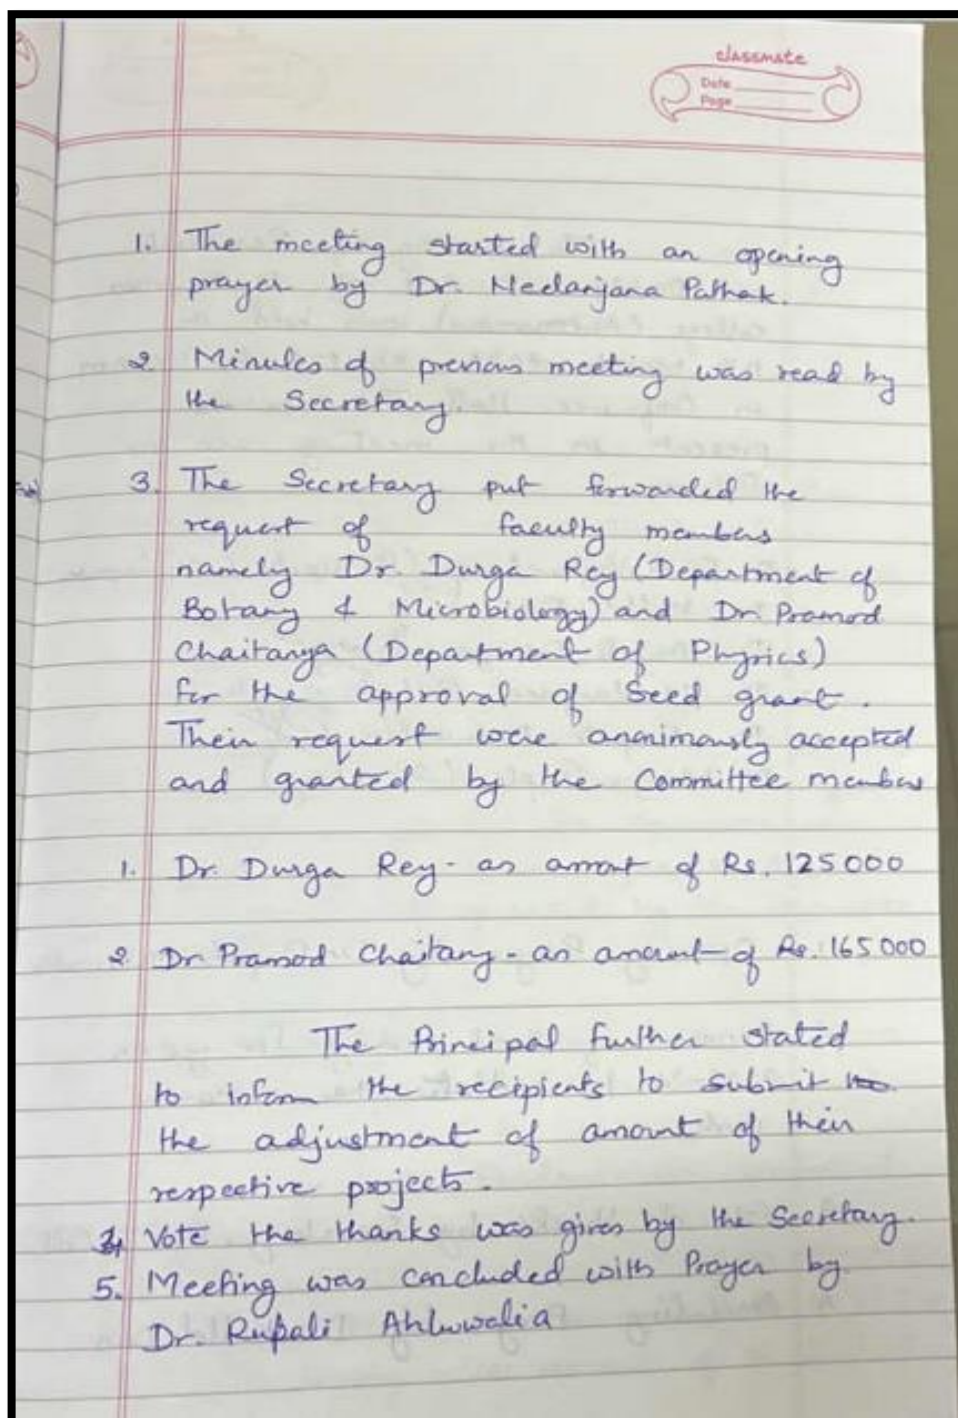 classmate
Date
Page
1. The meeting started with an opening
prayer by Dr. Neelanjana Pathak.
2. Minutes of previous meeting was read by
the Secretary.
3. The Secretary put forwarded the
request of faculty members
namely Dr. Durga Rey (Department of
Botany & Microbiology) and Dr. Pramod
Chaitanya (Department of Physics)
for the approval of Seed grant.
Their request were ananimously accepted
and granted by the Committee members
1. Dr. Durga Rey - an amout of Rs. 125000
2. Dr Pramod Chaitany - an amount of Rs. 165000
The Principal further stated
to inform the recipients to submit
the adjustment of amount of their
respective projects.
4. Vote the thanks was given by the Secretary.
5. Meeting was concluded with Prayer by
Dr. Rupali Ahluwalia